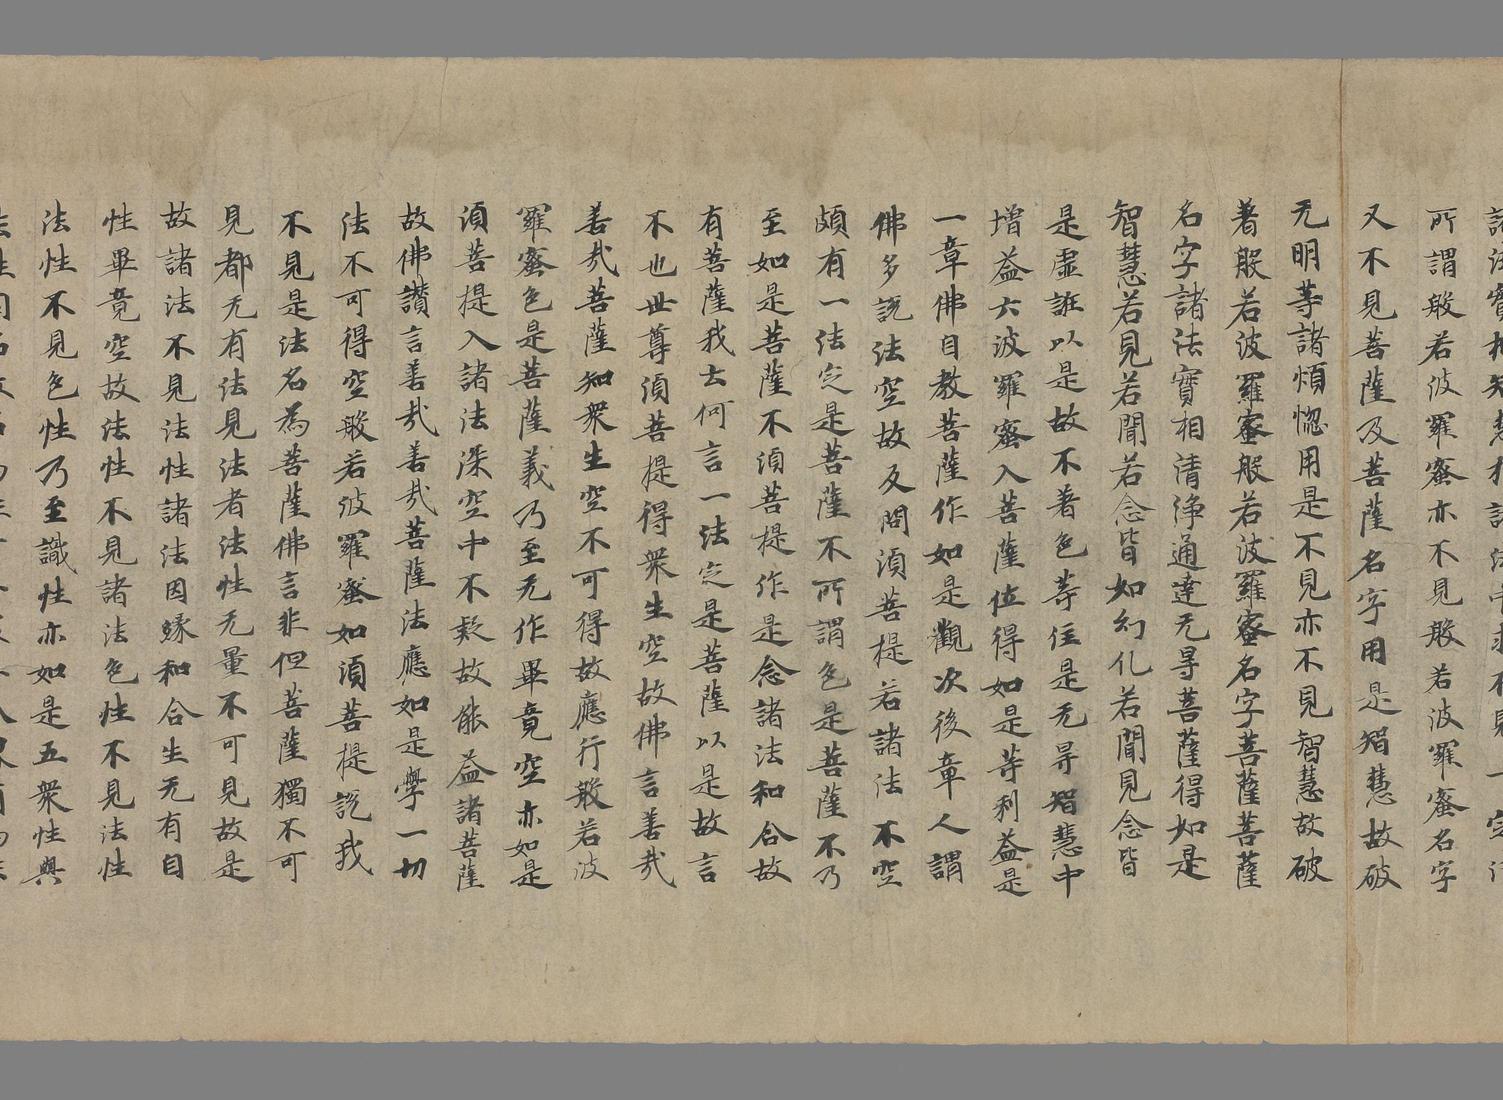 諸法實相智慧於諸法中求不見一定法
所謂般若波羅蜜亦不見般若波羅蜜名字
又不見菩薩及菩薩名字用是智慧故破
无明等諸煩惱用是不見亦不見智慧故破
著般若波羅蜜般若波羅蜜名字菩薩菩薩
名字諸法實相清淨通達无㝵菩薩得如是
智慧若見若聞若念皆如幻化若聞見念皆
是虛誑以是故不著色等住是无㝵智慧中
增益六波羅蜜入菩薩位得如是等利益是
一章佛自教菩薩作如是觀次後章人謂
佛多說法空故反問須菩提若諸法不空
頗有一法定是菩薩不所謂色是菩薩不乃
至如是菩薩不須菩提作是念諸法和合故
有菩薩我云何言一法定是菩薩以是故言
不也世尊須菩提得眾生空故佛言善哉
善哉菩薩知眾生空不可得故應行般若波
羅蜜色是菩薩義乃至无作畢竟空亦如是
須菩提入諸法深空中不疑故能益諸菩薩
故佛讚言善哉善哉菩薩法應如是學一切
法不可得空般若波羅蜜如須菩提說我
不見是法名為菩薩佛言非但菩薩獨不可
見都无有法見法者法性无量不可見故是
故諸法不見法性諸法因緣和合生无有自
性畢竟空故法性不見諸法色性不見法性
法性不見色性乃至識性亦如是五眾性與